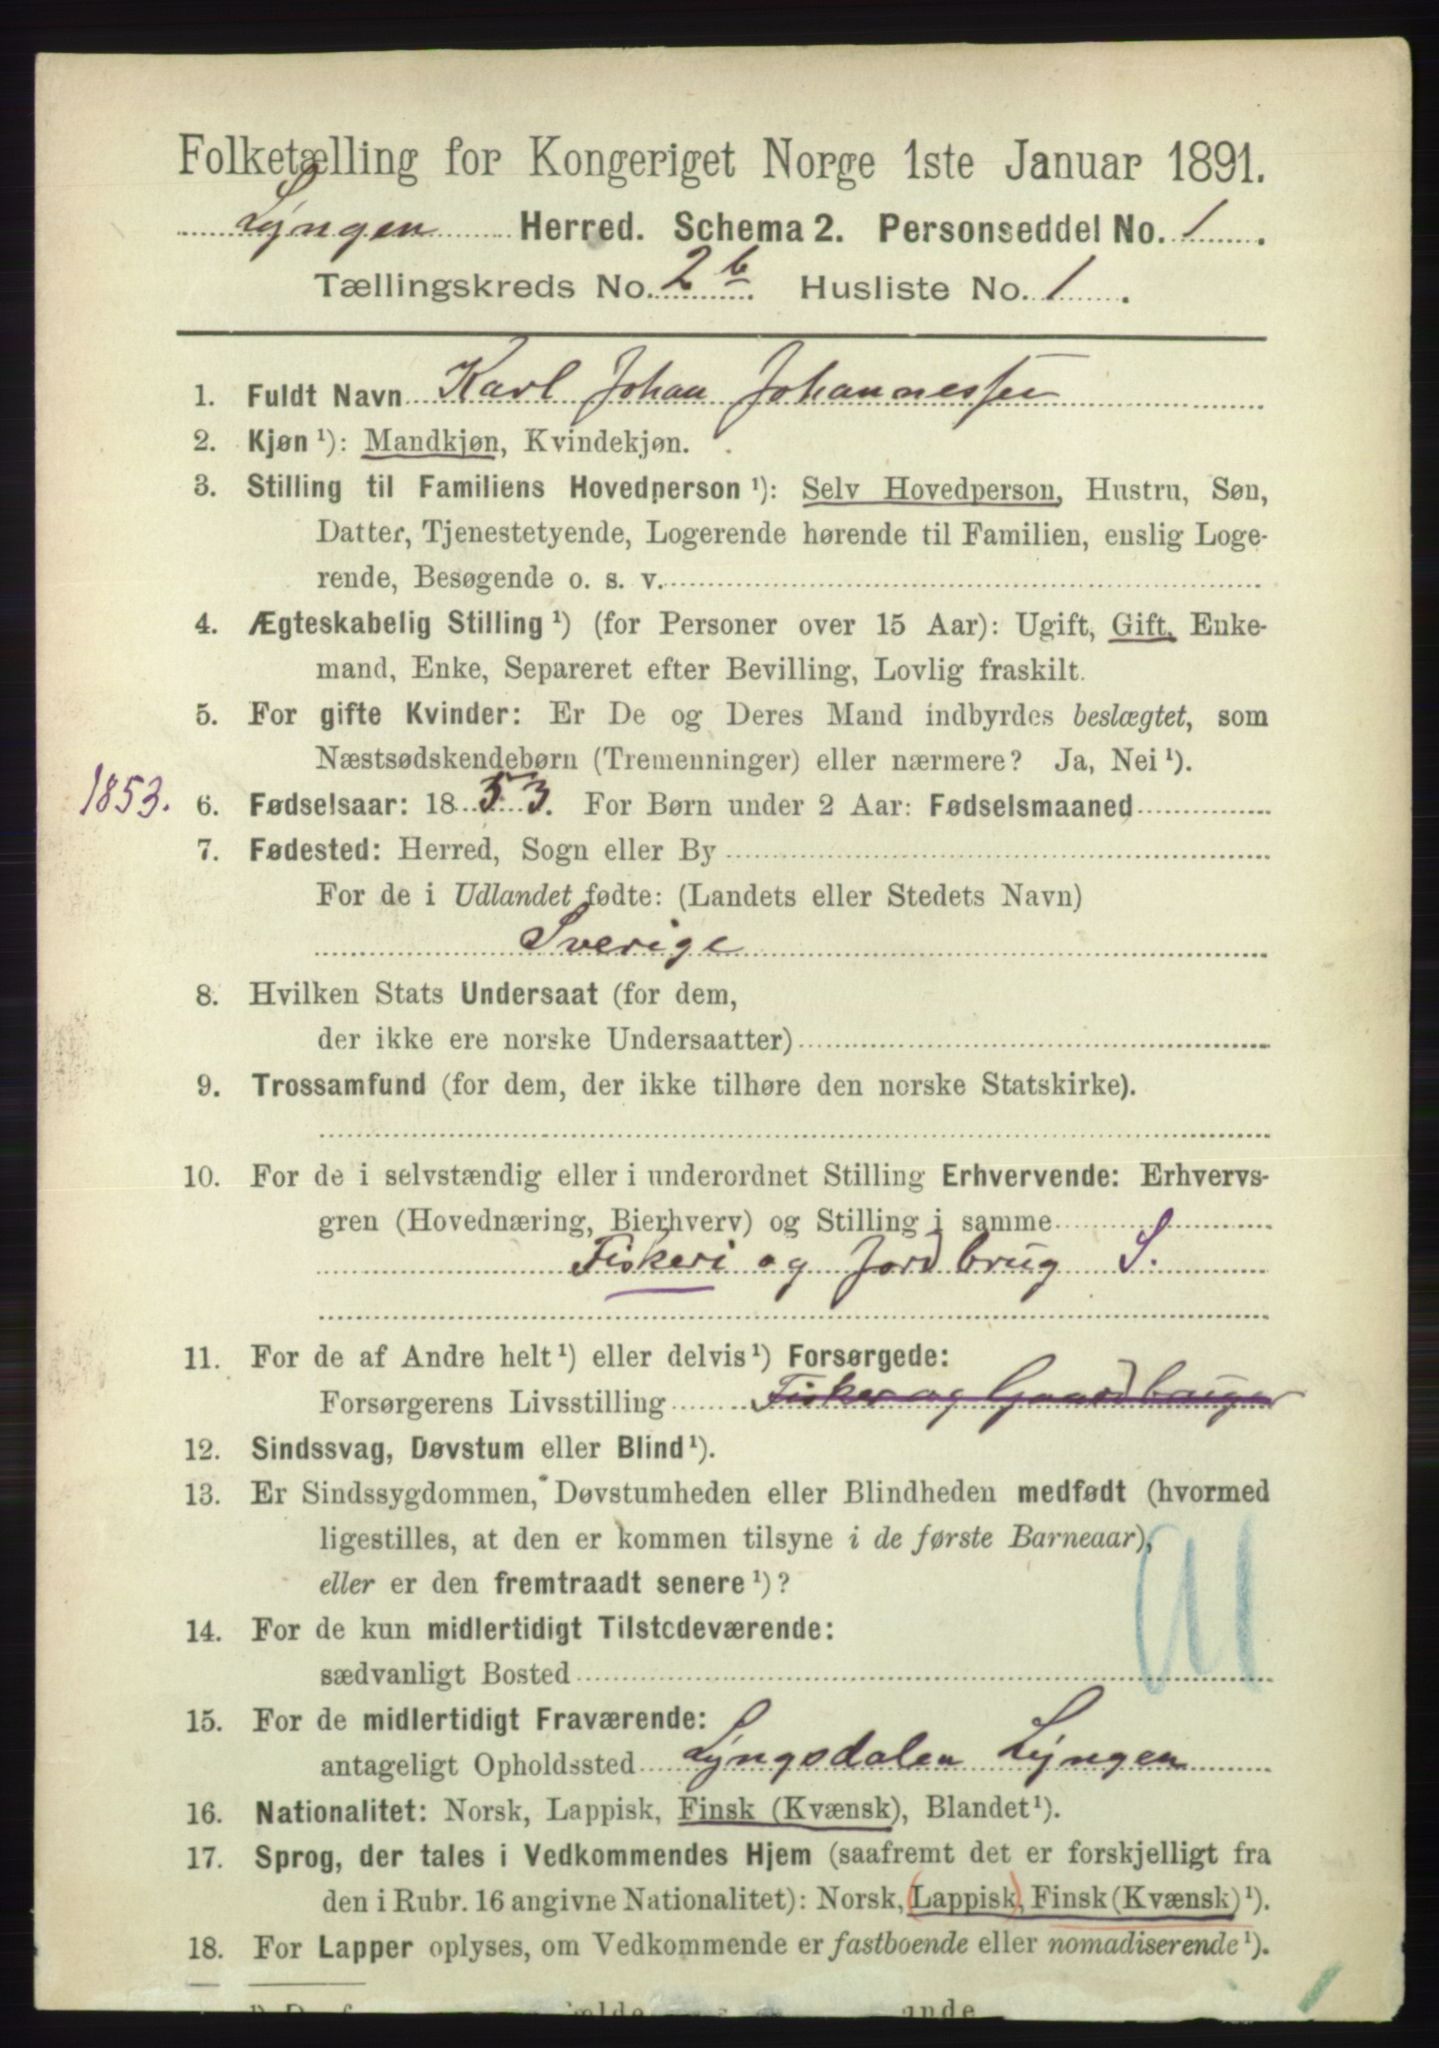 Folketælling for Kongeriget Norge 1ste Januar 1891.
Lyngen Herred. Schema 2. Personseddel No. 1.
Tællingskreds No. 2 b. Husliste No. 1.
1. Fuldt Navn Karl Johan Johannessen
2. Kjøn ¹): Mandkjøn, Kvindekjøn.
3. Stilling til Familiens Hovedperson ¹): Selv Hovedperson, Hustru, Søn,
Datter, Tjenestetyende, Logerende hørende til Familien, enslig Loge-
rende, Besøgende o. s. v.
4. Ægteskabelig Stilling ¹) (for Personer over 15 Aar): Ugift, Gift, Enke-
mand, Enke, Separeret efter Bevilling, Lovlig fraskilt.
5. For gifte Kvinder: Er De og Deres Mand indbyrdes beslægtet, som
Næstsødskendebørn (Tremenninger) eller nærmere? Ja, Nei ¹).
1853. 6. Fødselsaar: 1853. For Børn under 2 Aar: Fødselsmaaned
7. Fødested: Herred, Sogn eller By
For de i Udlandet fødte: (Landets eller Stedets Navn)
Sverige
8. Hvilken Stats Undersaat (for dem,
der ikke ere norske Undersaatter)
9. Trossamfund (for dem, der ikke tilhøre den norske Statskirke).
10. For de i selvstændig eller i underordnet Stilling Erhvervende: Erhvervs-
gren (Hovednæring, Bierhverv) og Stilling i samme
Fiskeri og Jordbrug S.
11. For de af Andre helt ¹) eller delvis ¹) Forsørgede:
Forsørgerens Livsstilling Fisker og Gaardbruger
12. Sindssvag, Døvstum eller Blind ¹).
13. Er Sindssygdommen, Døvstumheden eller Blindheden medfødt (hvormed
ligestilles, at den er kommen tilsyne i de første Barneaar),
eller er den fremtraadt senere ¹)?
14. For de kun midlertidigt Tilstedeværende:
sædvanligt Bosted
15. For de midlertidigt Fraværende:
antageligt Opholdssted Lyngsdalen Lyngen
16. Nationalitet: Norsk, Lappisk, Finsk (Kvænsk), Blandet ¹).
17. Sprog, der tales i Vedkommendes Hjem (saafremt det er forskjelligt fra
den i Rubr. 16 angivne Nationalitet): Norsk, (Lappisk), Finsk (Kvænsk) ¹).
18. For Lapper oplyses, om Vedkommende er fastboende eller nomadiserende ¹).